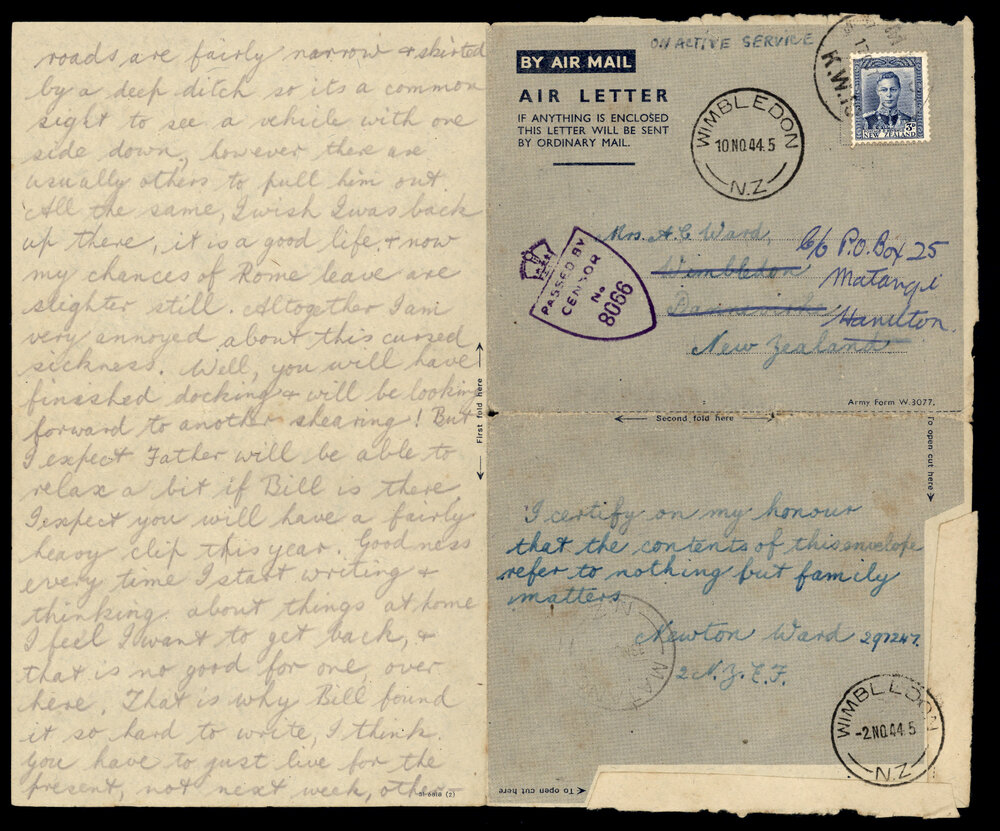 roads are fairly narrow & skirted
by a deep ditch so its a common
sight to see a vehicle with one
side down, however there are
usually others to pull him out.
All the same, I wish I was back
up there, it is a good life, & now
my chances of Rome leave are
slighter still. Altogether I am
very annoyed about this cursed
sickness. Well, you will have
finished docking & will be looking
forward to another shearing! But
I expect Father will be able to
relax a bit if Bill is there.
I expect you will have a fairly
heavy clip this year. Goodness
every time I start writing &
thinking about things at home
I feel I want to get back, &
that is no good for one over
here. That is why Bill found
it so hard to write, I think.
You have to just live for the
present, not next week, other
51-6618 (2)
First fold here
ON ACTIVE SERVICE
BY AIR MAIL
AIR LETTER
IF ANYTHING IS ENCLOSED
THIS LETTER WILL BE SENT
BY ORDINARY MAIL.
WIMBLEDON
10 NO.44.5
N.Z
NEW ZEALAND
3d
PASSED BY
CENSOR
No
8066
Mrs. A C Ward,
Wimbledon
Dannevirke
New Zealand
C/o P.O. Box 25
Matangi
Hamilton.
Army Form W.3077.
Second fold here
To open cut here
I certify on my honour
that the contents of this envelope
refer to nothing but family
matters
Newton Ward 297247.
2 N.Z.E.F.
WIMBLEDON
-2.NO.44.5
N.Z
To open cut here